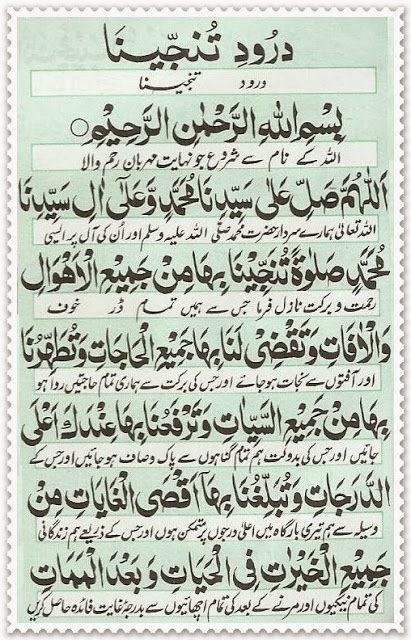 درُودِ تُنجّینَا
درود تنجینا
بِسْمِ اللهِ الرَّحْمٰنِ الرَّحِيْمِ
اللہ کے نام سے شروع جو نہایت مہربان رحم والا
اَللّٰهُمَّ صَلِّ عَلٰى سَيِّدِنَا مُحَمَّدٍ وَّعَلٰٓى اٰلِ سَيِّدِنَا
اللہ تعالیٰ ہمارے سردار حضرت محمد صلی اللہ علیہ وسلم اور اُن کی آل پر ایسی
مُحَمَّدٍ صَلٰوةً تُنَجِّيْنَا بِهَا مِنْ جَمِيْعِ الْاَهْوَالِ
رحمت و برکت نازل فرما جس سے ہمیں تمام ڈر خوف
وَالْاٰفَاتِ وَتَقْضِىْ لَنَا بِهَا جَمِيْعَ الْحَاجَاتِ وَتُطَهِّرُنَا
اور آفتوں سے نجات ہو جائے اور جس کی برکت سے ہماری تمام حاجتیں روا ہو
بِهَا مِنْ جَمِيْعِ السَّيِّاٰتِ وَتَرْفَعُنَا بِهَا عِنْدَكَ اَعْلَى
جائیں اور جس کی بدولت ہم تمام گناہوں سے پاک و صاف ہو جائیں اور جس کے
الدَّرَجَاتِ وَتُبَلِّغُنَا بِهَآ اَقْصَى الْغَايَاتِ مِنْ
وسیلے سے ہم تیری بارگاہ میں اعلیٰ درجوں پر متمکن ہوں اور جس کے ذریعے ہم زندگانی
جَمِيْعِ الْخَيْرٰتِ فِى الْحَيَاتِ وَبَعْدَ الْمَمَاتِ
کی تمام نیکیوں اور مرنے کے بعد کی تمام اچھائیوں سے بدرجہ غایت فائدہ حاصل کریں